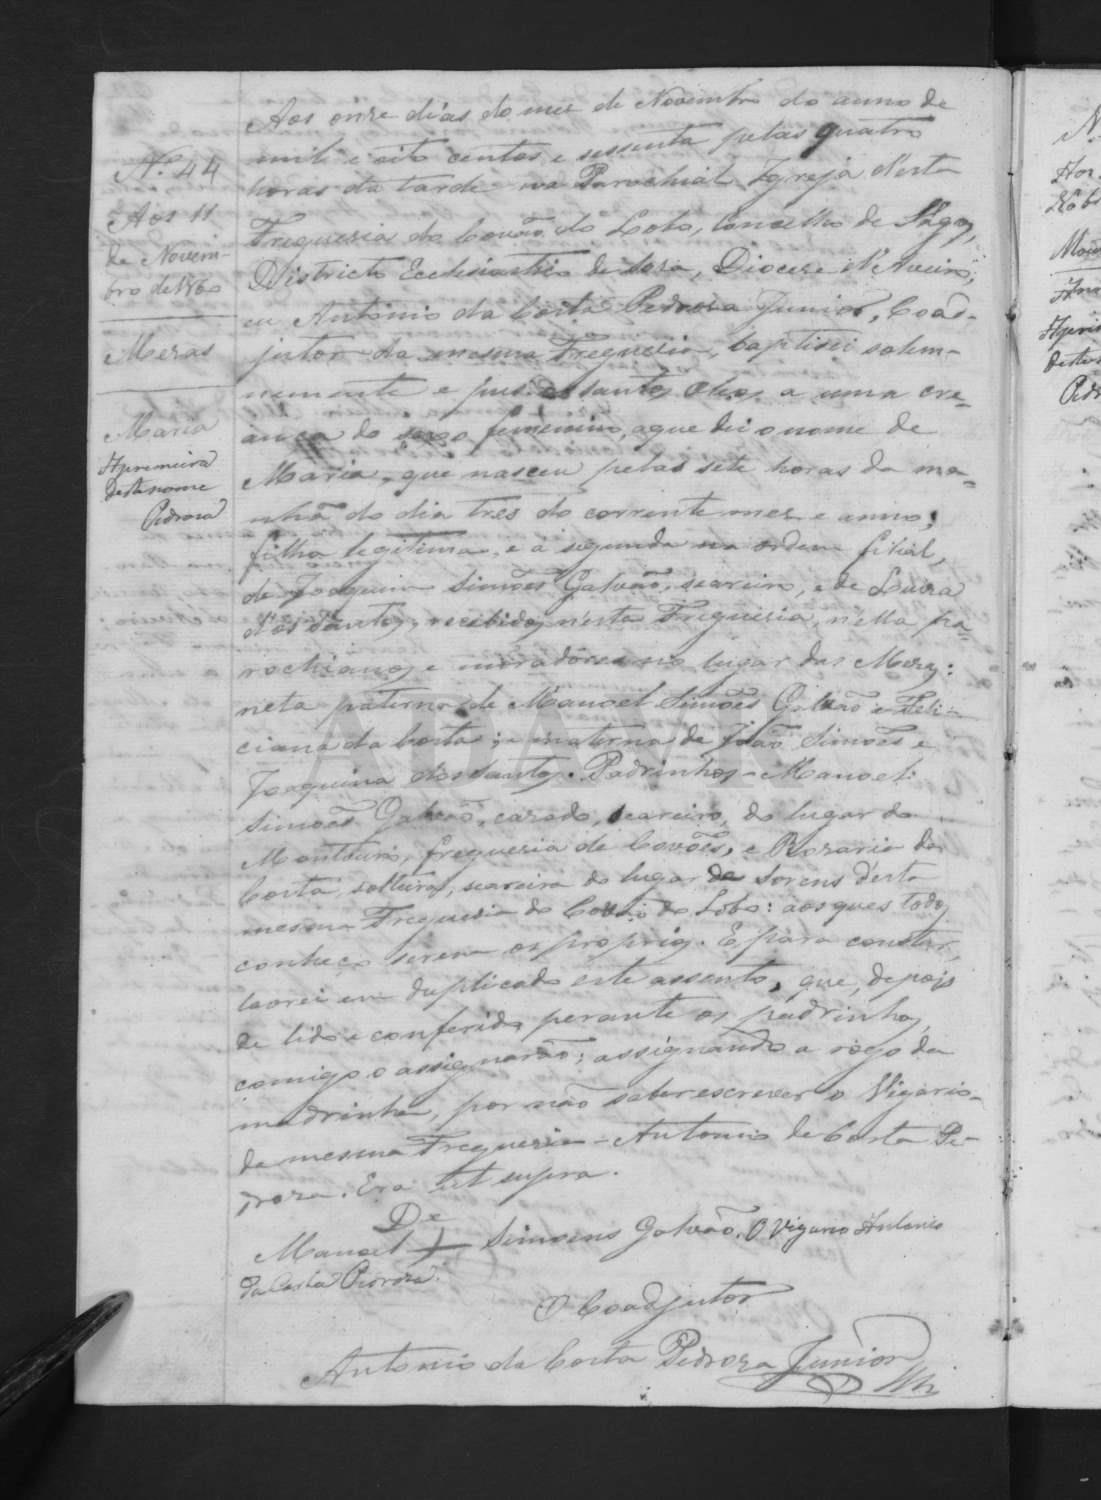 Nº 44
Aos 11
de Novem-
bro de 1860
Meras
Maria
A primeira
deste nome
Pedroza
Aos onze dias do mez de Novembro do anno de
mil e oito centos e sessenta pelas quatro
horas da tarde na Parochial Igreja d'esta
Freguesia do Covão do Lobo, Concelho de
Districto Ecclesiastico de Soza, Diocese d'Aveiro,
eu Antonio da Costa Pedroza Junior, Coad-
jutor da mesma Freguesia, baptisei solem-
nemente e puz os santos Oleos a uma cre-
ança do sexo femenino, a que dei o nome de
Maria, que nasceu pelas sete horas da ma-
nhã do dia tres do corrente mez e anno;
filha legitima, e a segunda na ordem filial,
de Joaquim Simões Galvão, seareiro, e de Luiza
dos Santos, recebidos n'esta Freguesia, n'ella pa-
rochianos e moradores no lugar das Meras:
neta paterna de Manoel Simões Galvão e Feli-
ciana da Costa; e materna de João Simões e
Joaquina dos Santos. Padrinhos - Manoel
Simoes Galvão, cazado, seareiro, do lugar do
Montouro, freguesia de Covões, e Rozaria da
Costa, solteira, seareira do lugar de d'esta
mesma Freguesia do Covão do Lobo: aos ques todos
conheço serem os proprios. E para constar,
lavrei em duplicado este assento, que, depois
de lido e conferido perante os padrinhos,
comigo o assignarão; assignando a rogo da
madrinha, por não saber escrever o Vigario
da mesma Freguesia - Antonio da Costa Pe-
droza. Era ut supra.
De
Manoel + Simoens Galvão. O Vigario Antonio
da Costa Pedroza.
O Coadjutor
Antonio da Costa Pedroza Junior
ADAVR